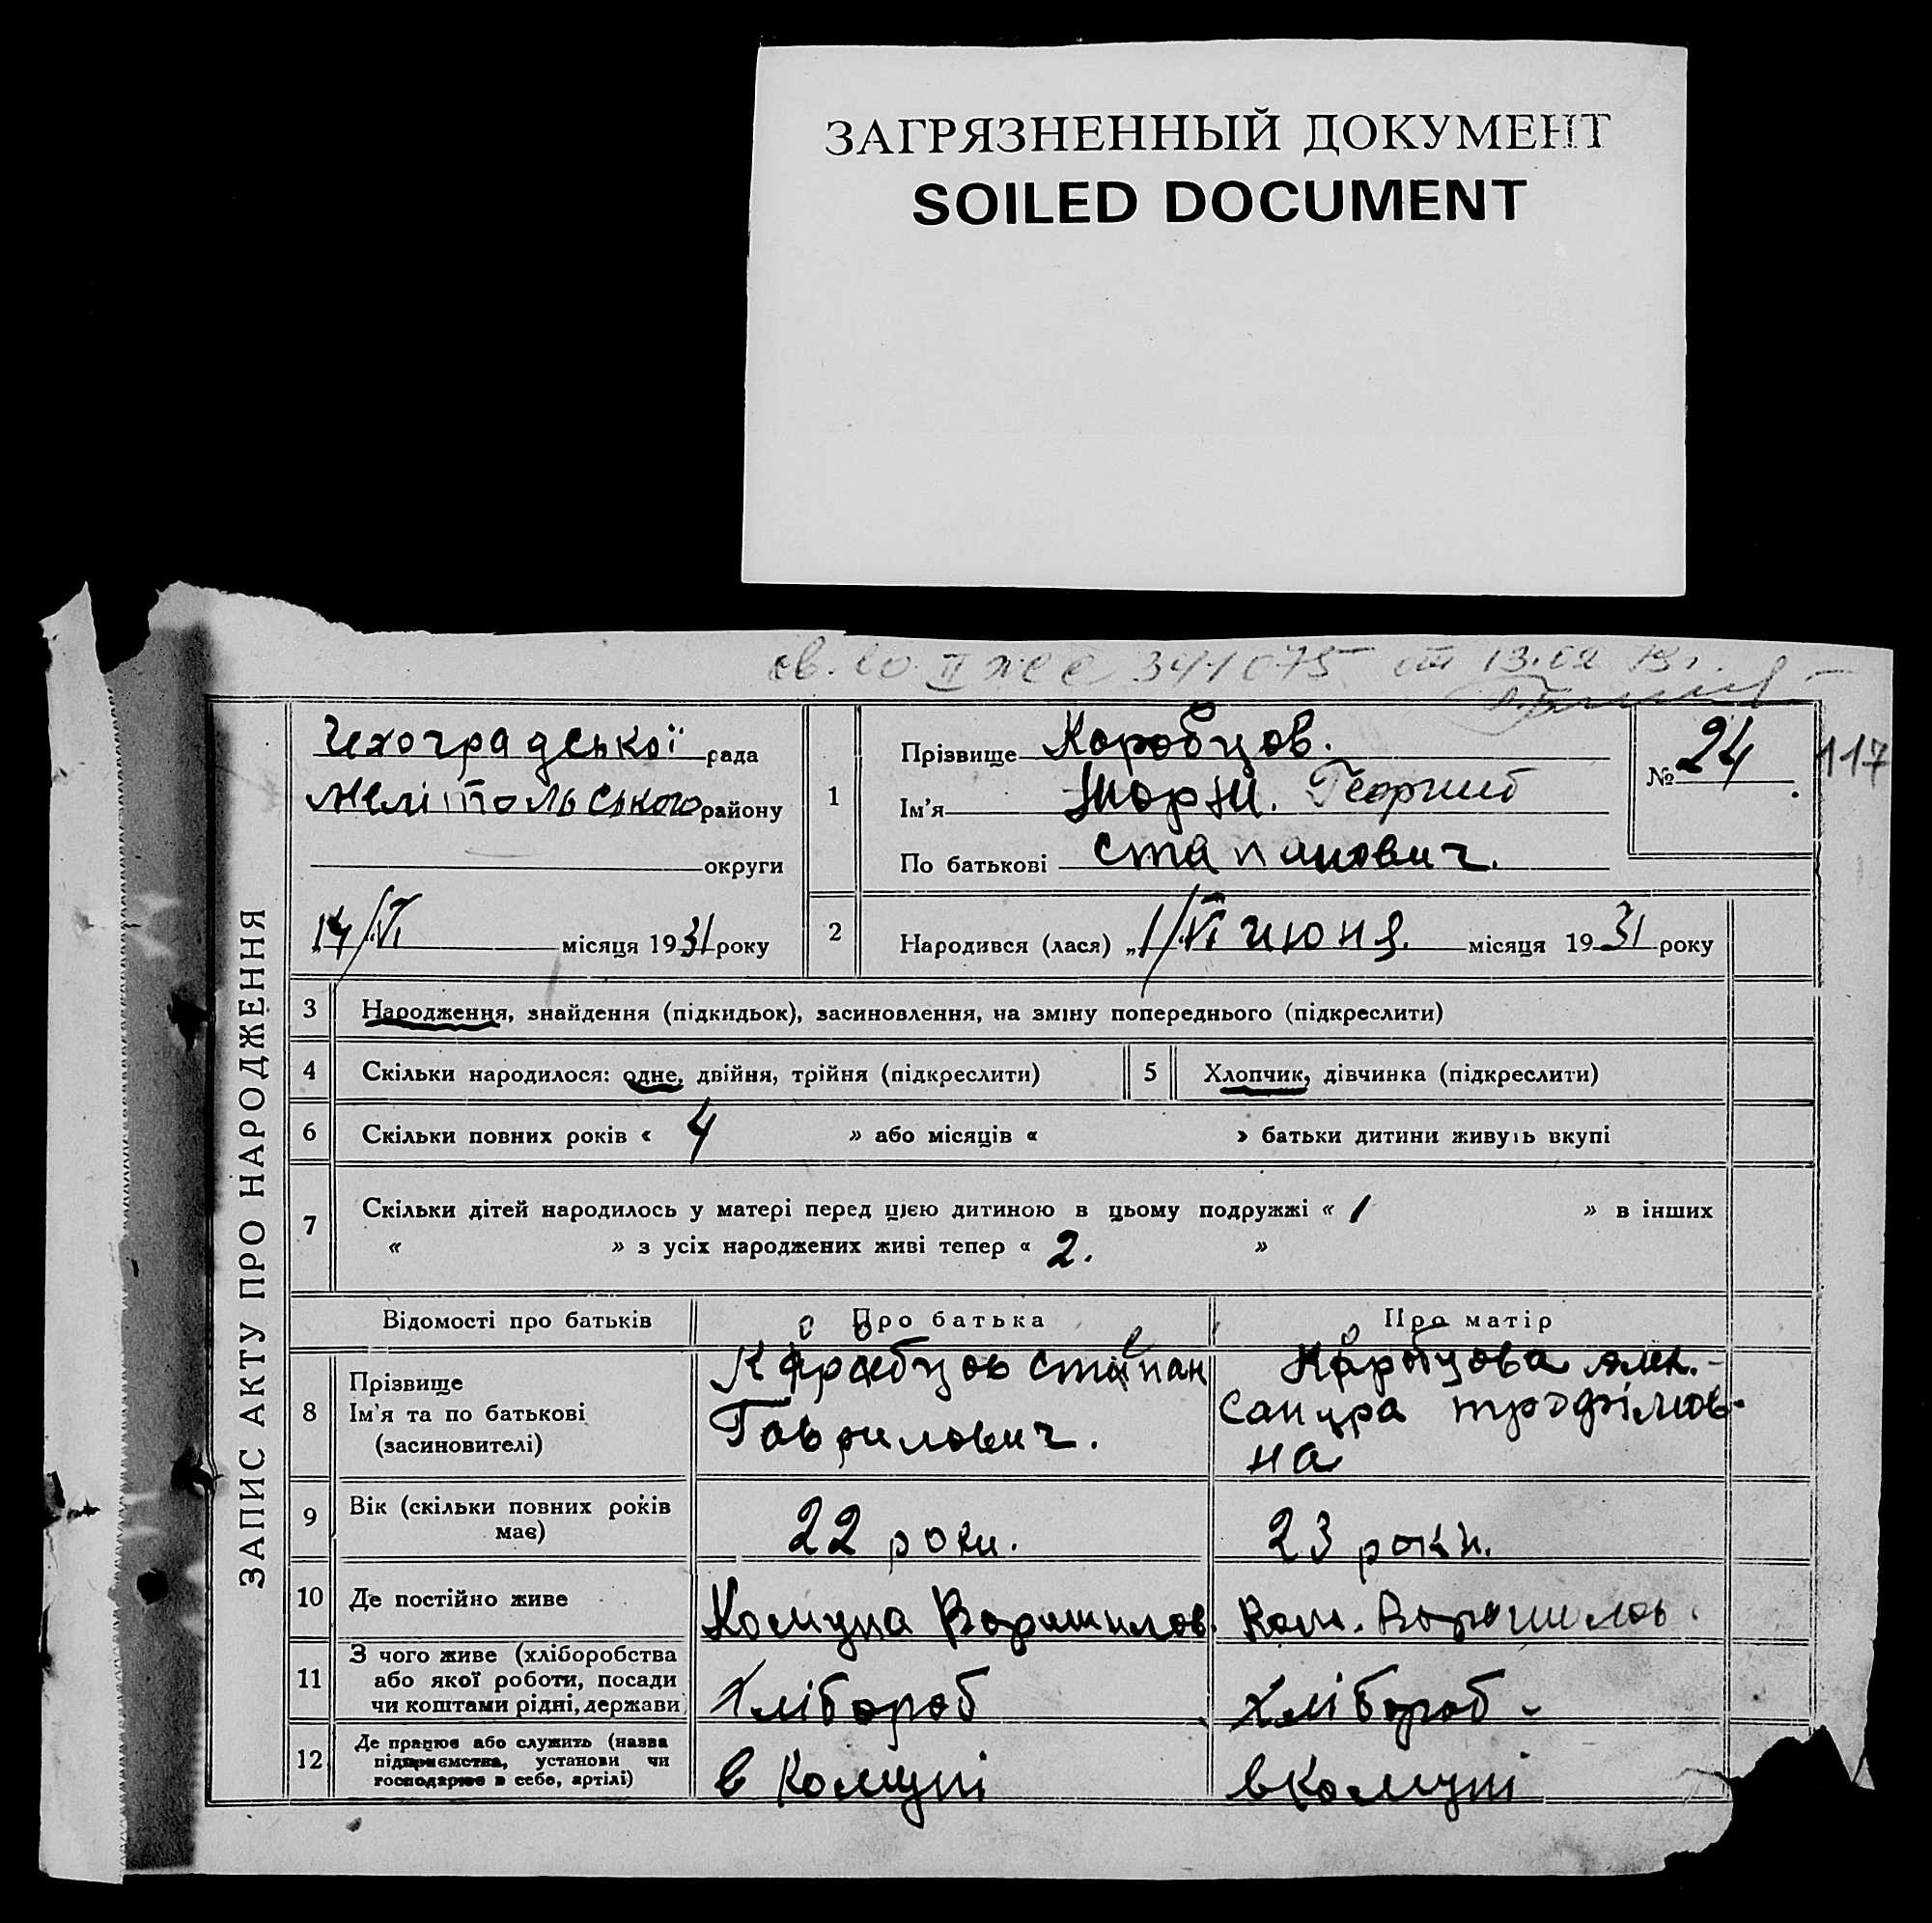 ЗАГРЯЗНЕННЫЙ ДОКУМЕНТ
SOILED DOCUMENT
св. во II 341075 от 13.02
ЗАПИС АКТУ ПРО НАРОДЖЕННЯ
рада
Мелітольського району
округи
14/VI місяця 1931 року
1
Прізвище Коробцов.
Ім'я Жорж. Георгий
По батькові Стапанович.
№ 24
117
2
Народився (лася) „1/VI июня місяця 1931 року
3 Народження, знайдення (підкидьок), засиновлення, на зміну попереднього (підкреслити)
4 Скільки народилося: одне, двійня, трійня (підкреслити) 5 Хлопчик, дівчинка (підкреслити)
6 Скільки повних років « 4 » або місяців « » батьки дитини живуть вкупі
7 Скільки дітей народилось у матері перед цією дитиною в цьому подружжі « 1 » в інших
« » з усіх народжених живі тепер « 2. »
Відомості про батьків Про батька Про матір
8 Прізвище
Ім'я та по батькові
(засиновителі)
Коробцов Степан
Гаврилович.
Коробцова Алек-
сандра трофімов-
на
9 Вік (скільки повних років
має)
22 роки. 23 роки.
10 Де постійно живе Комуна Ворошилов. Ком. Ворошилов.
11 З чого живе (хліборобства
або якої роботи, посади
чи коштами рідні, держави)
Хлібороб Хлібороб
12 Де працює або служить (назва
підприємства, установи чи
господарює в себе, артілі)
в Комуні в Комуні